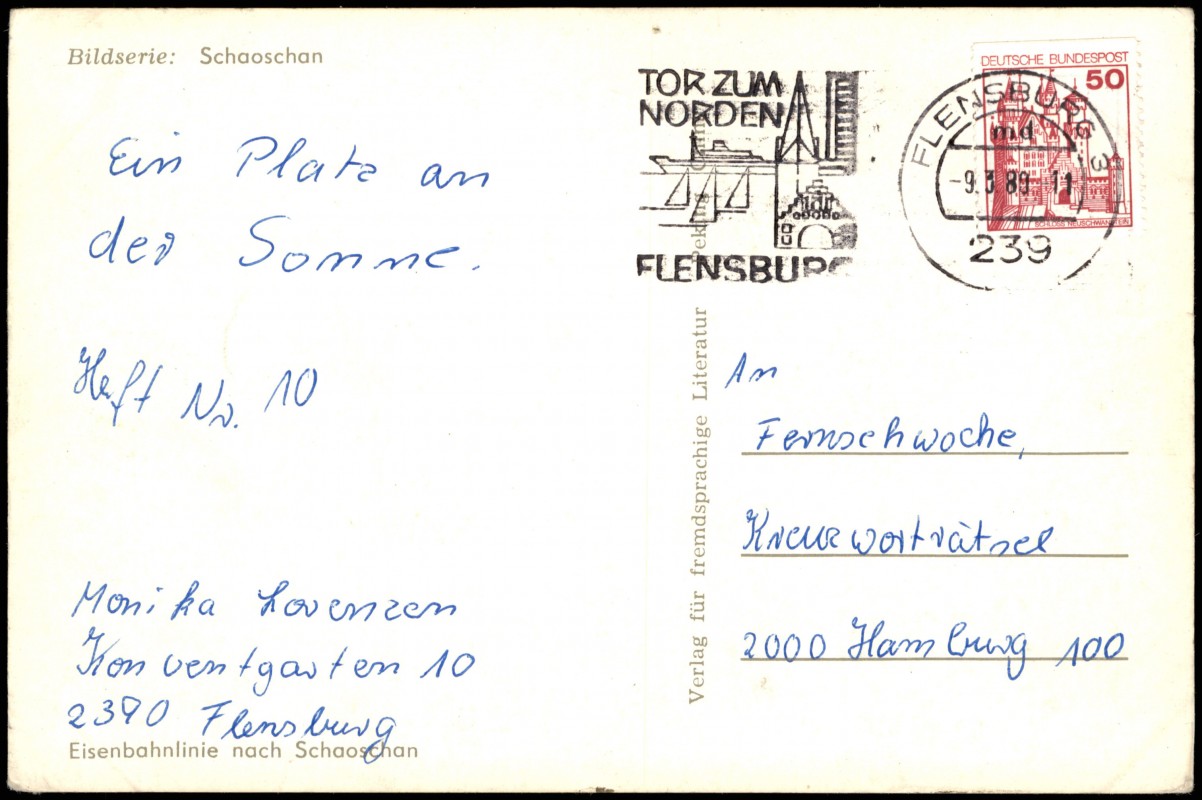 Bildserie: Schaoschan
Ein Platz an
der Sonne.
Heft Nr. 10
Monika Lorenzen
Konventgarten 10
2390 Flensburg
Eisenbahnlinie nach Schaoschan
Verlag für fremdsprachige Literatur
TOR ZUM
NORDEN
FLENSBURG
DEUTSCHE BUNDESPOST
50
SCHLOSS NEUSCHWANSTEIN
FLENSBURG 3
md
-9.3.89 11
239
An
Fernsehwoche,
Kreuzworträtsel
2000 Hamburg 100